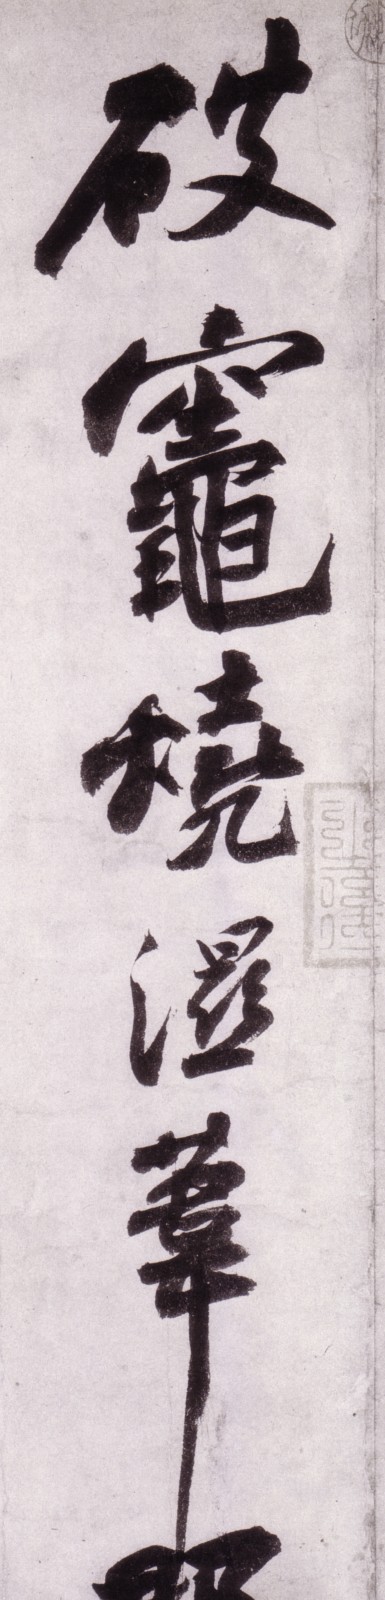 破竈燒濕葦